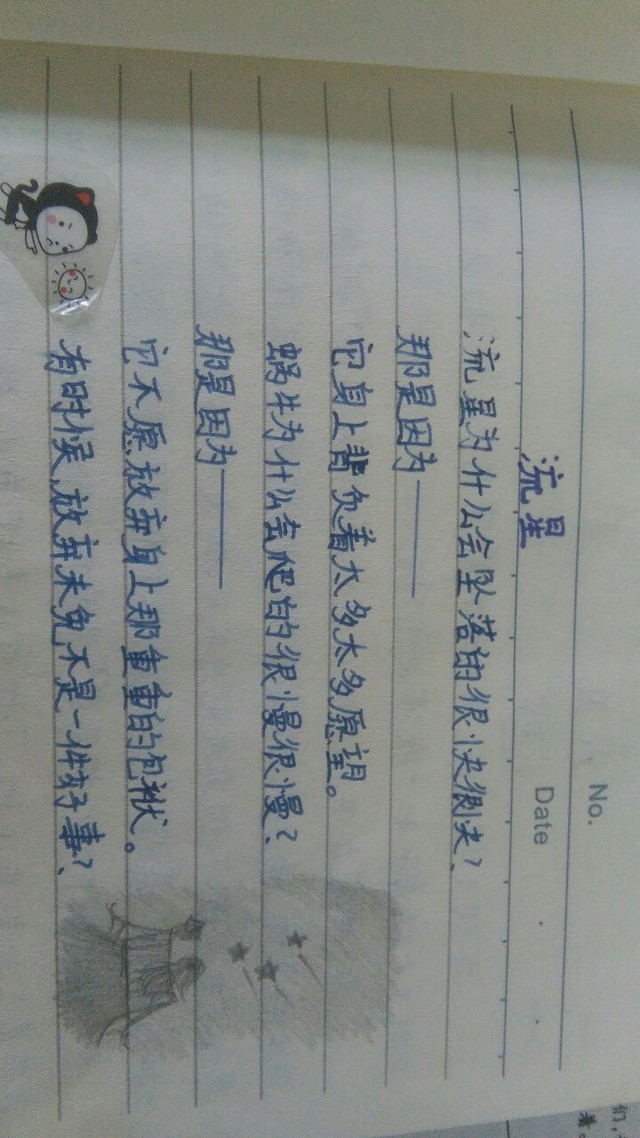 No.
Date
流星
流星为什么会坠落的很快很快?
那是因为——
它身上背负着太多太多原望。
蜗牛为什么会爬的很慢很慢?
那是因为——
它不愿放弃身上那重重的包袱。
有时候,放弃未免不是一件好事?
们,
着。